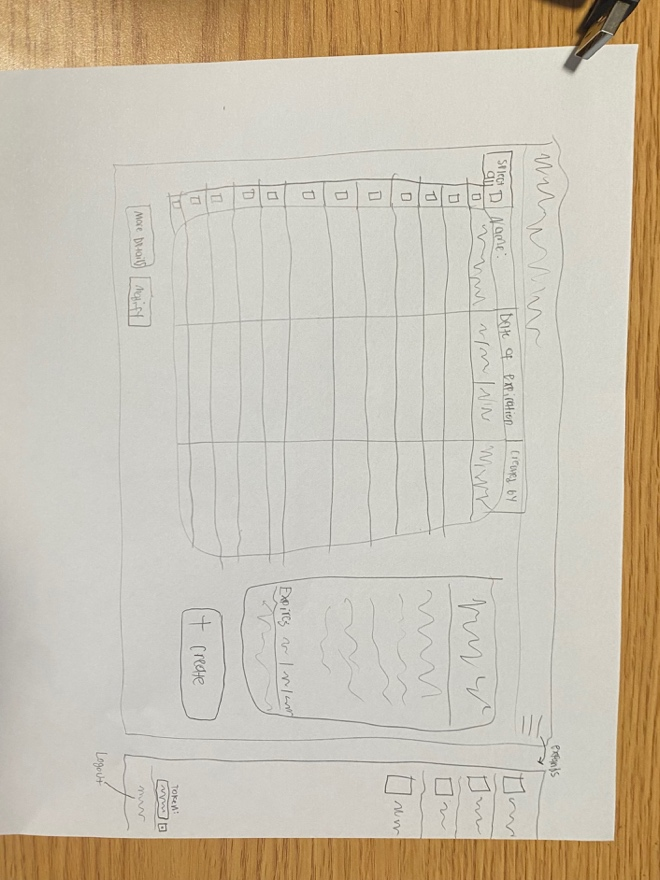 Select
all
Name:
Date of expiration
Created by
More Details
Modify
Expires
+ Create
Expands
Token:
Logout